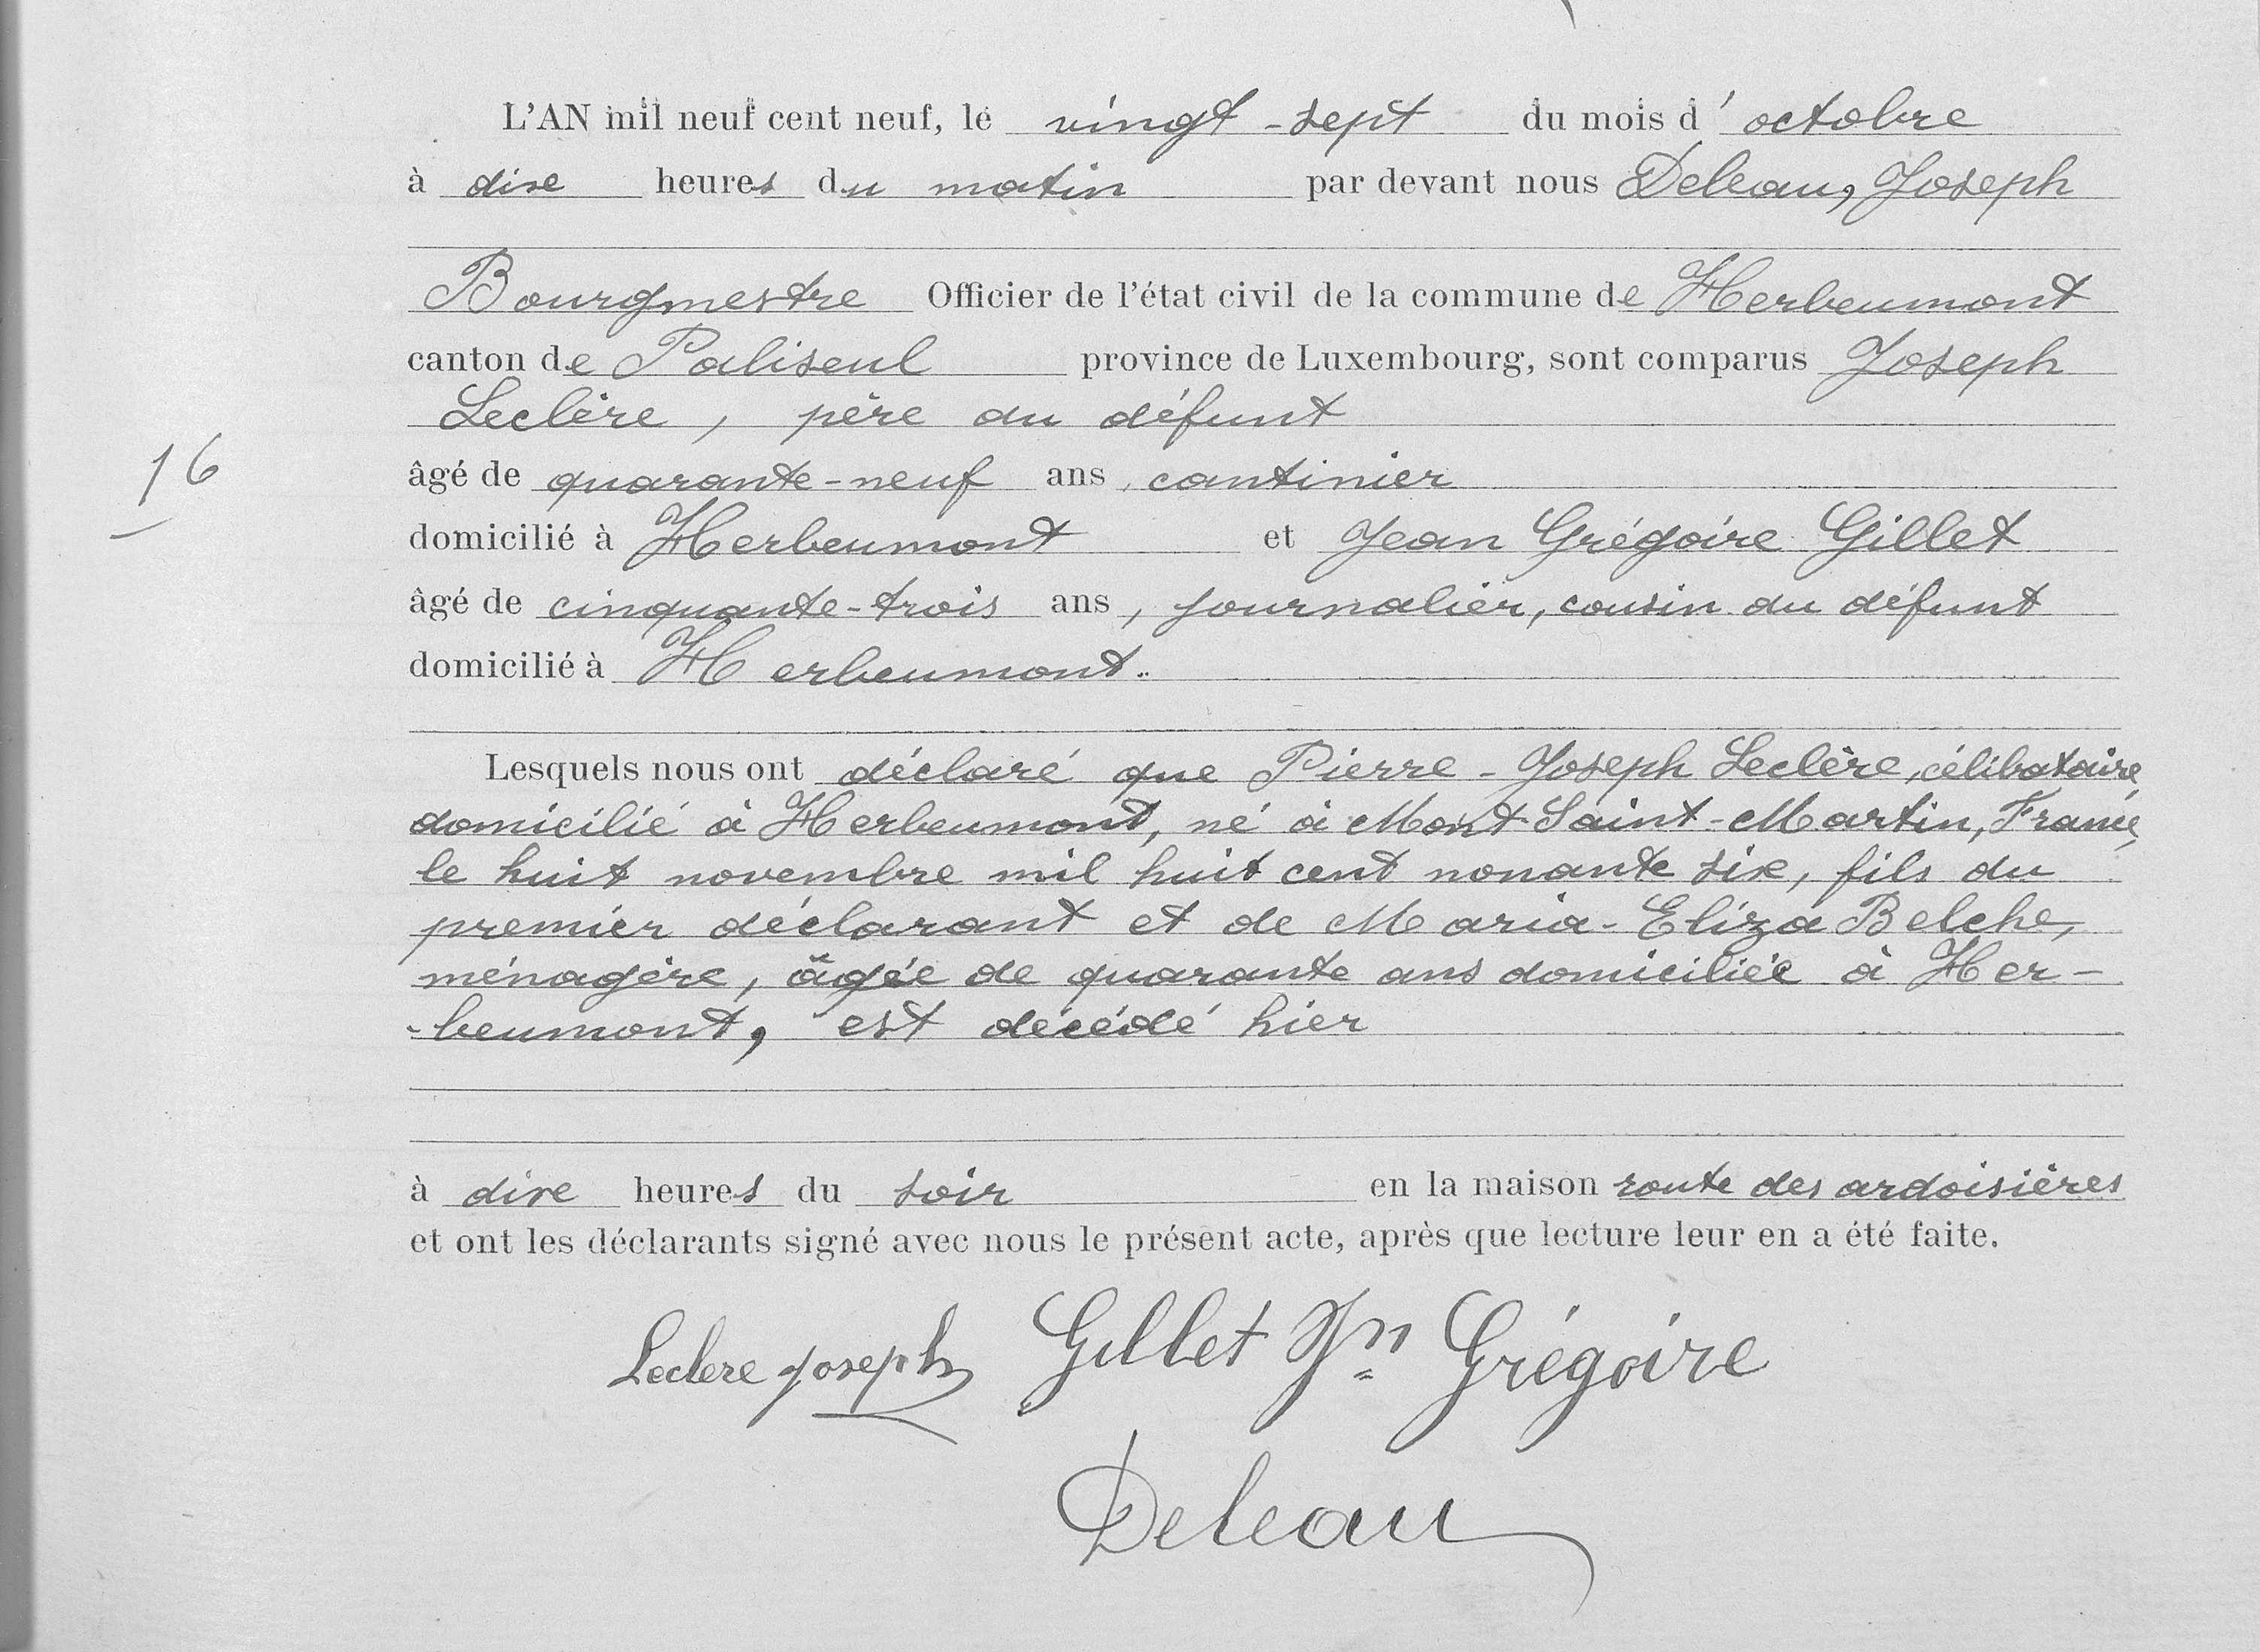 L'AN mil neuf cent neuf, le vingt-sept du mois d'octobre
à dix heures du matin par devant nous Deleau, Joseph
Bourgmestre Officier de l'état civil de la commune de Herbeumont
canton de Paliseul province de Luxembourg, sont comparus Joseph
Leclère, père du défunt
16
âgé de quarante-neuf ans, cantinier
domicilié à Herbeumont et Jean Grégoire Gillet
âgé de cinquante-trois ans, journalier, cousin du défunt
domicilié à Herbeumont.
Lesquels nous ont déclaré que Pierre-Joseph Leclère, célibataire,
domicilié à Herbeumont, né à Mont-Saint-Martin, France,
le huit novembre mil huit cent nonante six, fils du
premier déclarant et de Maria-Eliza Belche,
ménagère, âgée de quarante ans domiciliée à Her-
-beumont, est décédé hier
à dix heures du soir en la maison route des ardoisières
et ont les déclarants signé avec nous le présent acte, après que lecture leur en a été faite.
Leclere Joseph Gillet Jn Grégoire
Deleau